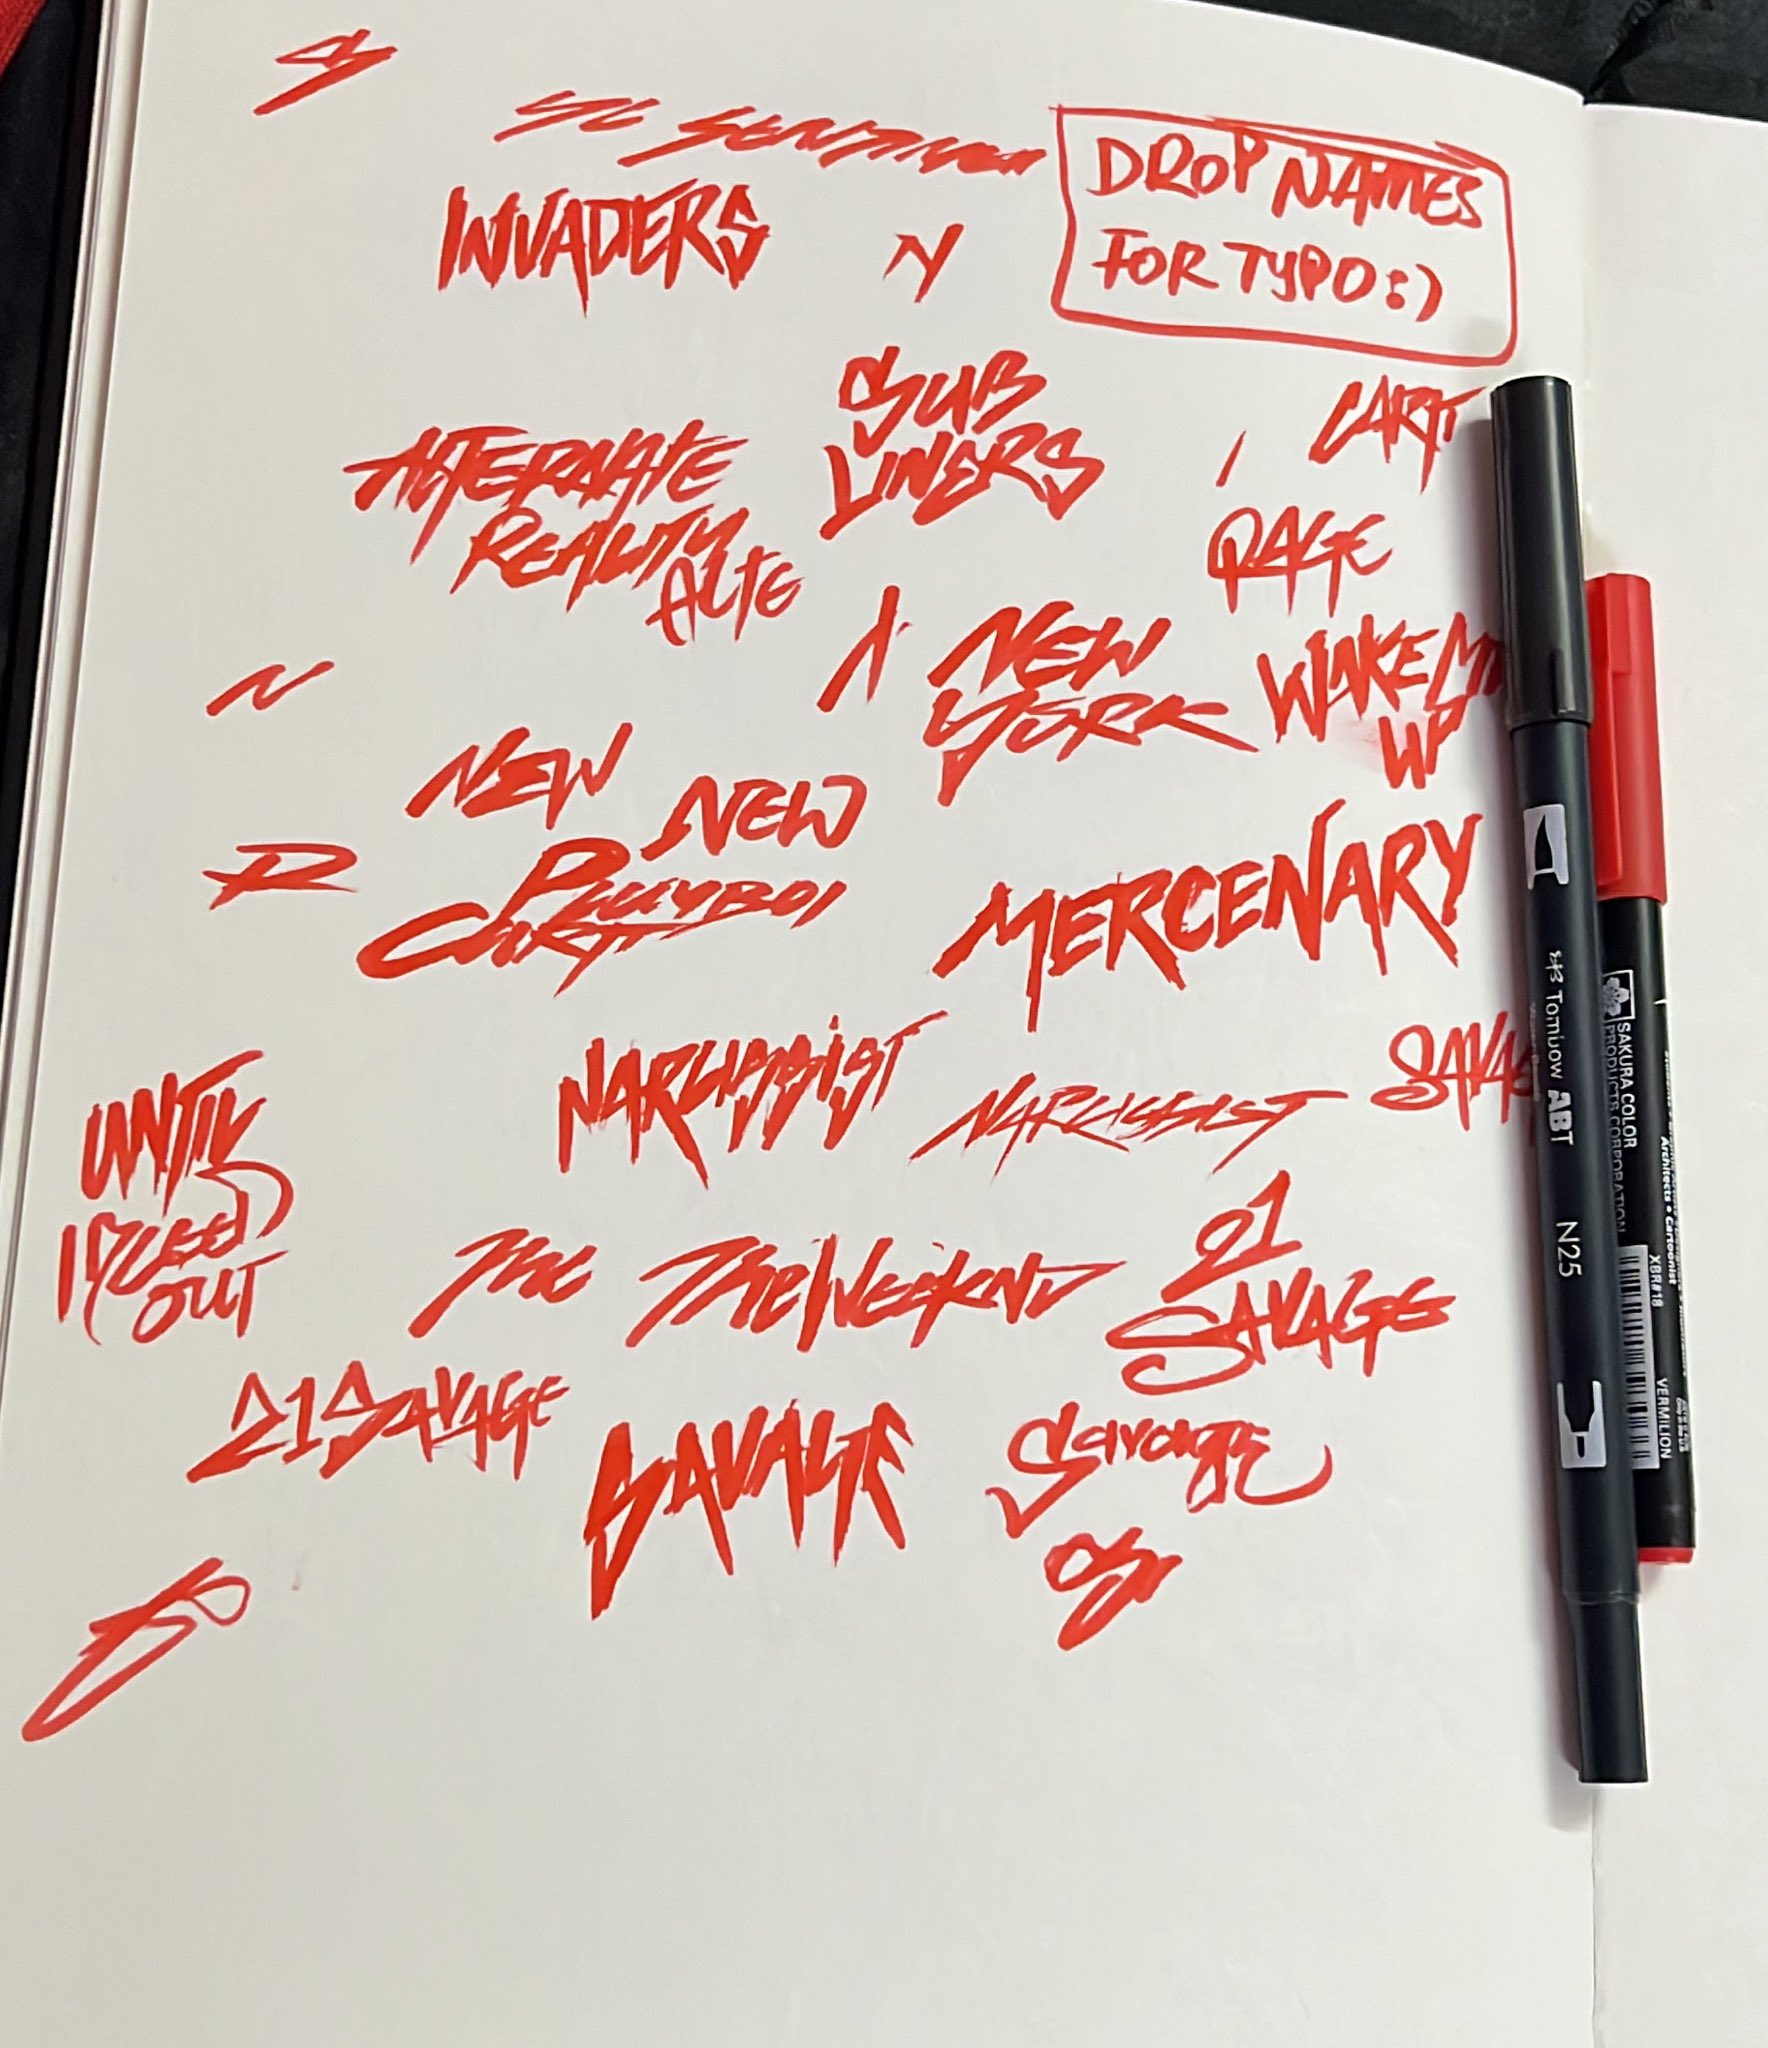 DROP NAMES
FOR TYPO :)
INVADERS
N
SUB
LINERS
CARTI
ALTERNATE
REALITY
ALTE
RAGE
NEW
YORK
WAKE M
UP
NEW
NEW
PLAYBOI
CARTI
MERCENARY
NARCISSIST
NARCISSIST
SAVAG
UNTIL
I BLEED
OUT
The
The WEEKND
21
SAVAGE
21 SAVAGE
SAVAGE
Savage
Tombow ABT
N25
SAKURA COLOR
PRODUCTS CORPORATION
XBR#18
VERMILION
Architects • Cartoonist